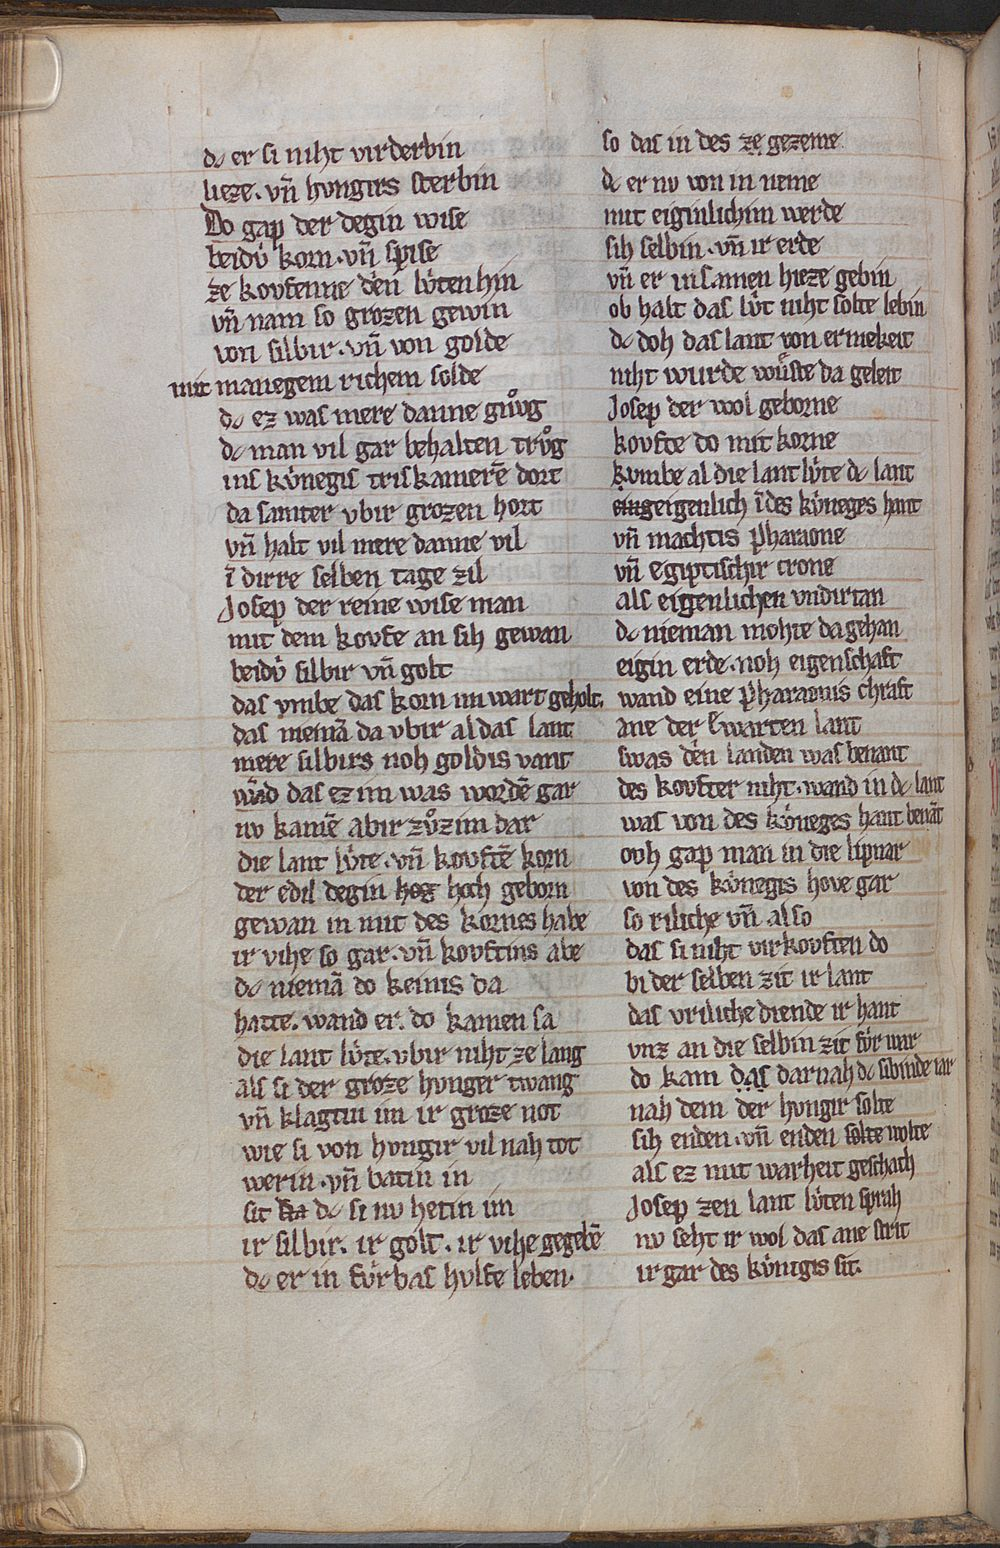 dc er si niht virderbin
lieze. vn̄ hvngirs sterbin
Do gap der degin wise
beidv̍ korn. vn̄ spise
ze kovfenne den lv̍ten hin
vn̄ nam so grozen gewin
von silbir. vn̄ von golde
mit manegem richem solde
dc ez was mere danne gnv̊g
dc man vil gar behalten trv̊g
ins kv̍negis triskamerē dort
da samter vbir grozen hort
vn̄ halt vil mere danne vil
ī dirre selben tage zil
Josep der reine wise man
mit dem kovfe an sih gewan
beidv̍ silbir vn̄ golt
das vmbe das korn im wart geholt.
das niemā da vbir al das lant
mere silbirs noh goldis vant
wād das ez im was wordē gar
nv kamē abir zv̊zim dar
die lant lv̍te. vn̄ kovftē korn
der edil degin hog hoch geborn
gewan in mit des kornes habe
ir vihe so gar. vn̄ kovftins abe
dc niemā do keinis da
hatte. wand er. do kamen sa
die lant lv̍te. vbir niht ze lang
als si der groze hvnger twang
vn̄ klagtin im ir groze not
wie si von hvngir vil nah tot
werin. vn̄ batin in
sit dc si nv hetin im
ir silbir. ir golt. ir vihe gegebē
dc er in fv̍rbas hvlfe leben.
so das in des ze gezeme
dc er nv von in neme
mit eiginlichim werde
sih selbin. vn̄ ir erde
vn̄ er in samen hieze gebin
ob halt das lv̍t niht solte lebin
dc doh das lant von ermekeit
niht wurde wu̍ste da geleit
Josep der wol geborne
kovfte do mit korne
kvmbe al die lant lv̍te dc lant
eigenlich ī des kv̍neges hant
vn̄ machtis Pharaone
vn̄ egiptischir crone
als eigenlichen vndirtan
dc nieman mohte da gehan
eigin erde. noh eigenschaft
wand eine Pharaonis chraft
ane der ewarten lant
swas den landen was benant
des kovfter niht. wand in dc lant
was von des kv̍neges hant benāt
ovh gap man in die lipnar
von des kv̍negis hove gar
so riliche vn̄ also
das si niht virkovften do
bi der selben zit ir lant
das vriliche diende ir hant
vnz an die selbin zit fv̍r war
do kam das darnah dc sibinde iar
nah dem der hvngir solte
sih enden. vn̄ enden solte wolte
als ez mit warheit geschach
Josep zen lant lv̍ten sprah
nv seht ir wol das ane strit
ir gar des kv̍nigis sit.